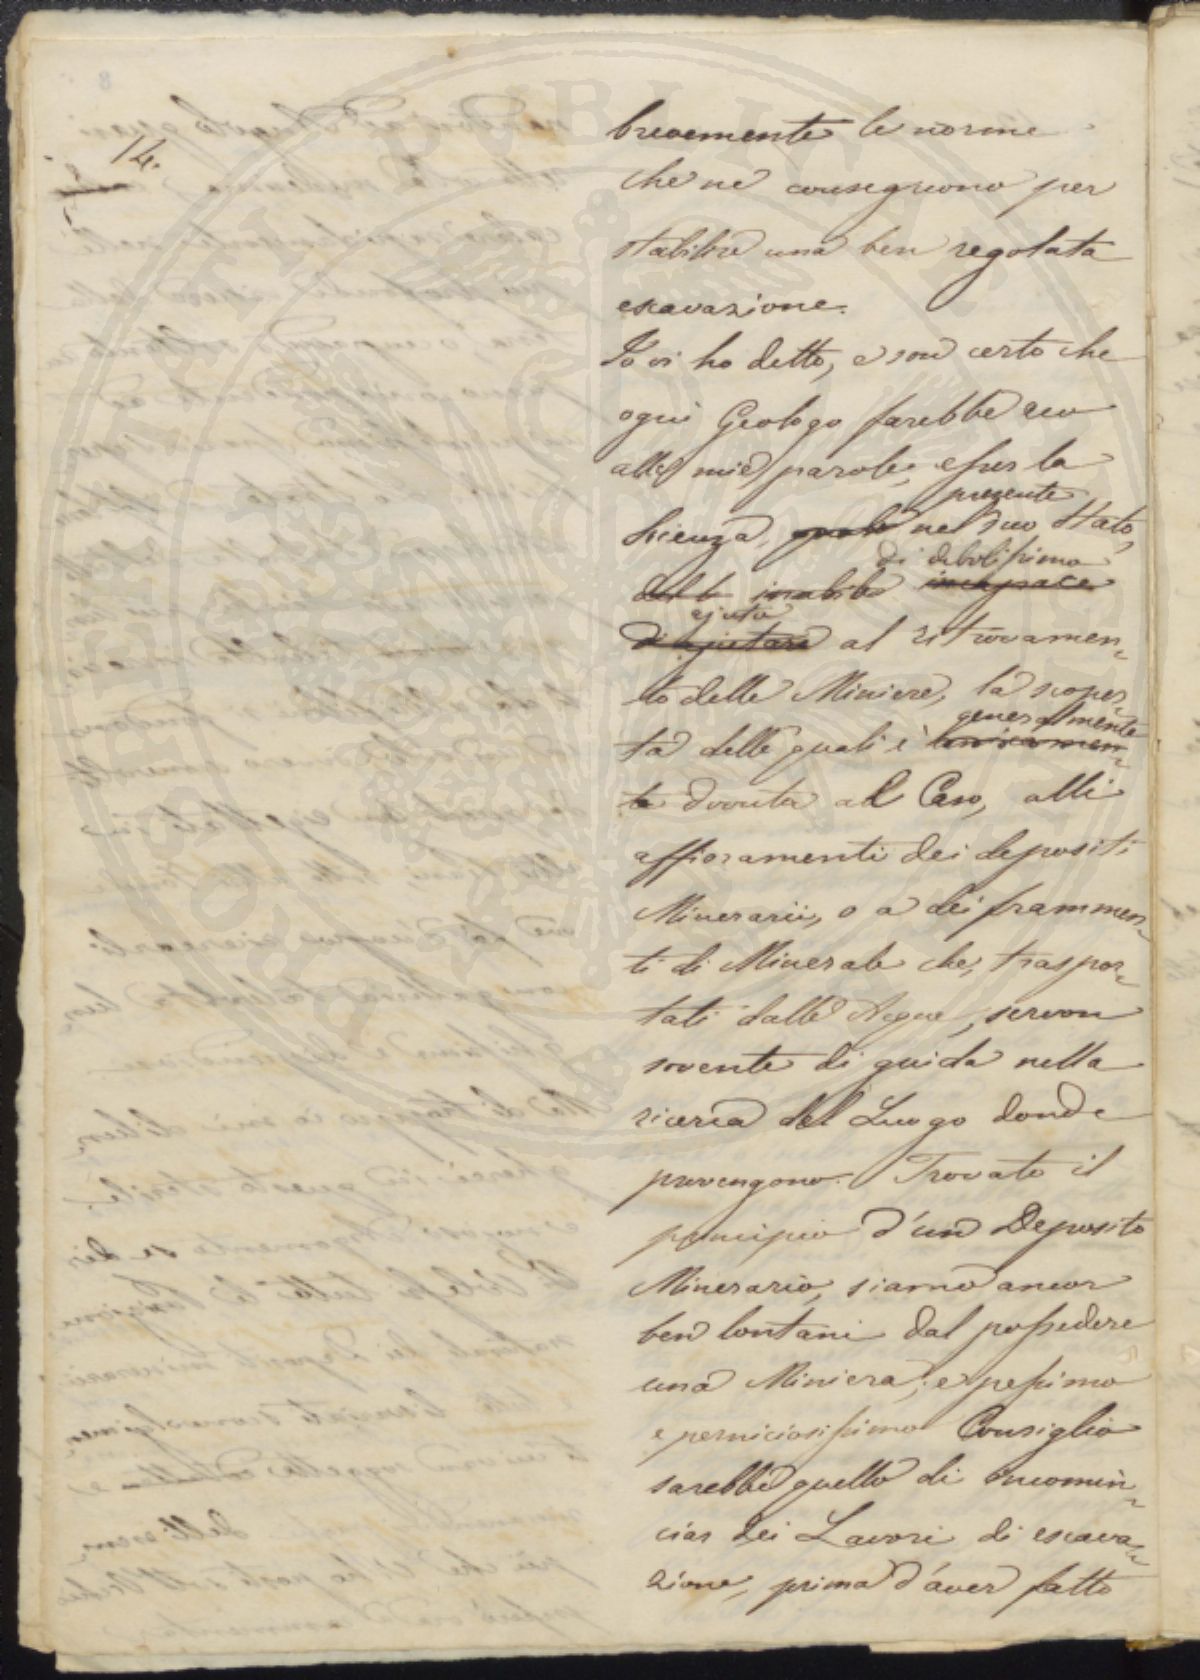 14.
brevemente le norme
che ne conseguono per
stabilire una ben regolata
escavazione.
Io vi ho detto, e son certo che
ogni Geologo farebbe eco
alle mie parole, esser la
presente
Scienza, quale nel suo stato,
di debolissimo
inabile incapace
ajuto
di ajutare al ritrovamen„
to delle Miniere, la scoper„
generalmente
ta delle quali è
te dovuta al Caso, alli
affioramenti dei depositi
Minerarii, o a dei frammen„
ti di Minerale che, traspor„
tati dalle Acque, servon
sovente di guida nella
ricerca del Luogo donde
provengono. Trovato il
principio d'un Deposito
Minerario, siamo ancor
ben lontani dal possedere
una Miniera; e pessimo
e perniciosissimo Consiglio
sarebbe quello di incomin„
ciar dei Lavori di escava„
zione, prima d'aver fatto